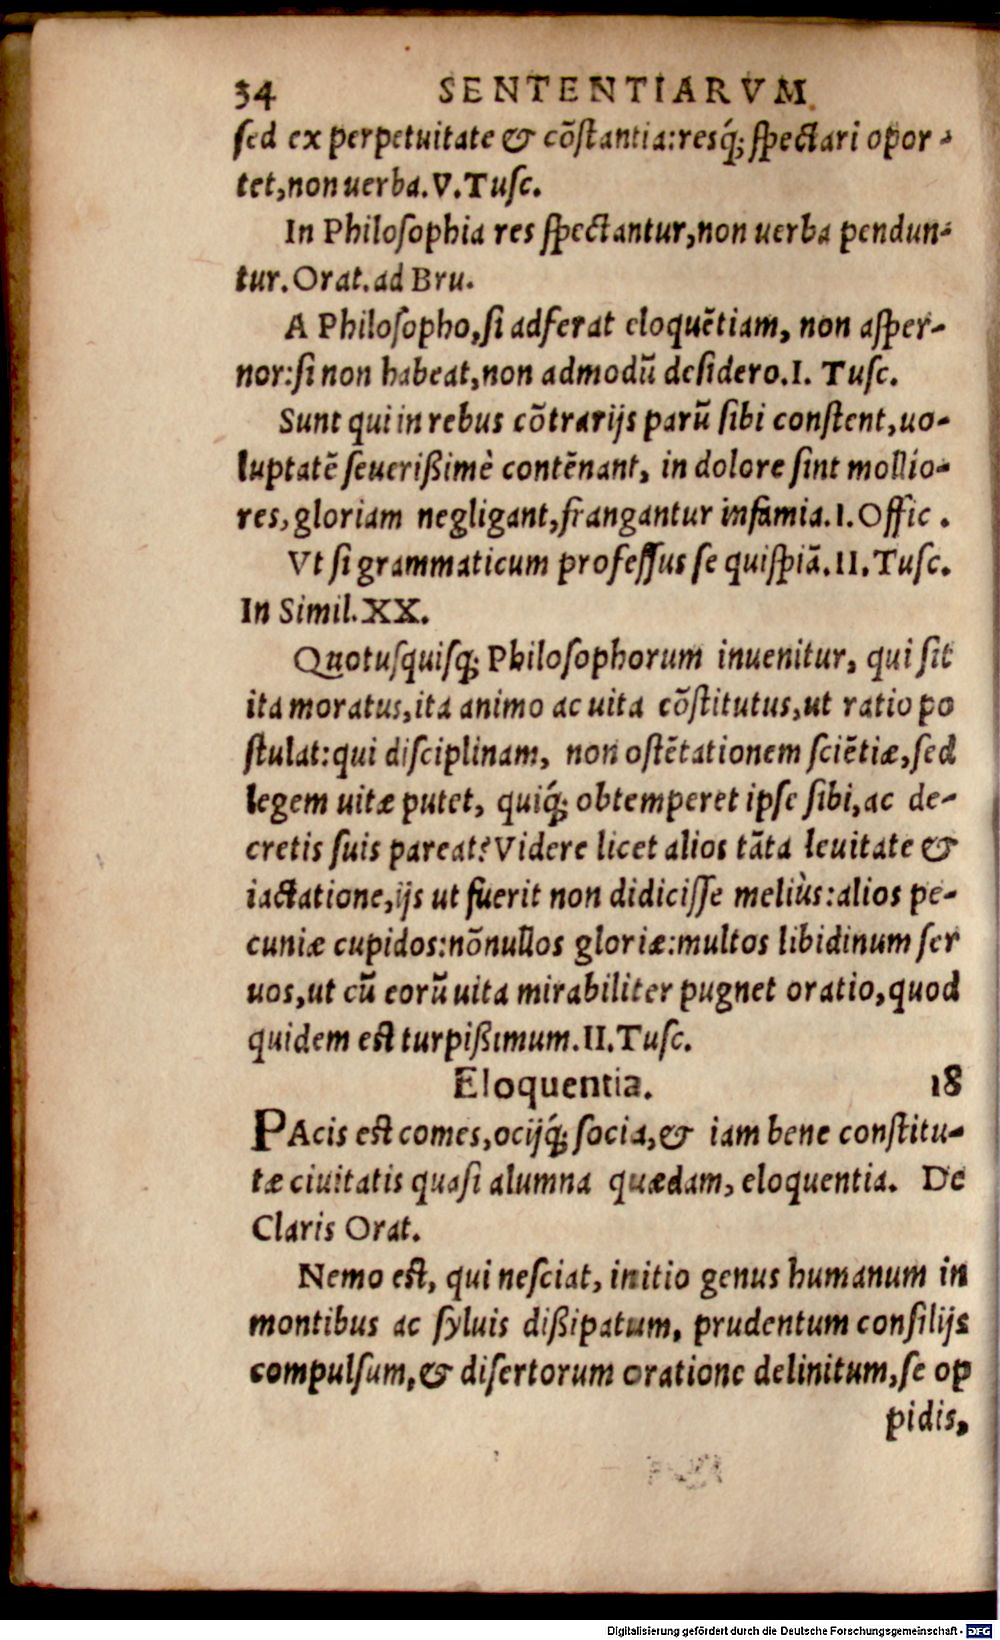 34 SENTENTIARVM
ſed ex perpetuitate & cōſtantia:resq́; ſpectari opor-
tet,non uerba.V.Tuſc.
In Philoſophia res ſpectantur,non uerba pendun-
tur.Orat.ad Bru.
A Philoſopho,ſi adferat eloquētiam, non aſper-
nor:ſi non habeat,non admodū deſidero.I. Tuſc.
Sunt qui in rebus cōtrarijs parū ſibi conſtent,uo-
luptatē ſeuerißimè contēnant, in dolore ſint mollio-
res,gloriam negligant,frangantur infamia.I.Offic.
Vt ſi grammaticum profeſſus ſe quiſpiā.II.Tuſc.
In Simil.XX.
Quotusquisq; Philoſophorum inuenitur, qui ſit
ita moratus,ita animo ac uita cōſtitutus,ut ratio po
ſtulat:qui diſciplinam, non oſtētationem ſciētiæ,ſed
legem uitæ putet, quiq́; obtemperet ipſe ſibi,ac de-
cretis ſuis pareat?Videre licet alios tāta leuitate &
iactatione,ijs ut fuerit non didiciſſe meliùs:alios pe-
cuniæ cupidos:nōnullos gloriæ:multos libidinum ſer
uos,ut cū eorū uita mirabiliter pugnet oratio,quod
quidem eſt turpißimum.II.Tuſc.
Eloquentia. 18
PAcis eſt comes,ocijq́; ſocia,& iam bene conſtitu-
tæ ciuitatis quaſi alumna quædam, eloquentia. De
Claris Orat.
Nemo eſt, qui neſciat, initio genus humanum in
montibus ac ſyluis dißipatum, prudentum conſilijs
compulſum,& diſertorum oratione delinitum,ſe op
pidis,
Digitalisierung gefördert durch die Deutsche Forschungsgemeinschaft - DFG